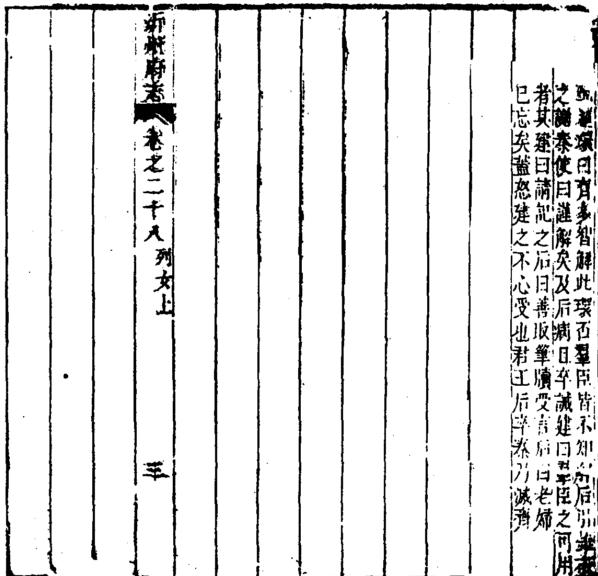 連環曰齊多智解此環否羣臣皆不知解后引
之謝秦使曰謹解矣及后病且卒誡建曰羣臣之可用
者某建曰請記之后曰善取筆牘受言后曰老婦
已忘矣蓋怒建之不心受也君王后卒秦乃滅齊
沂州府志
卷之二十八
列女上
三